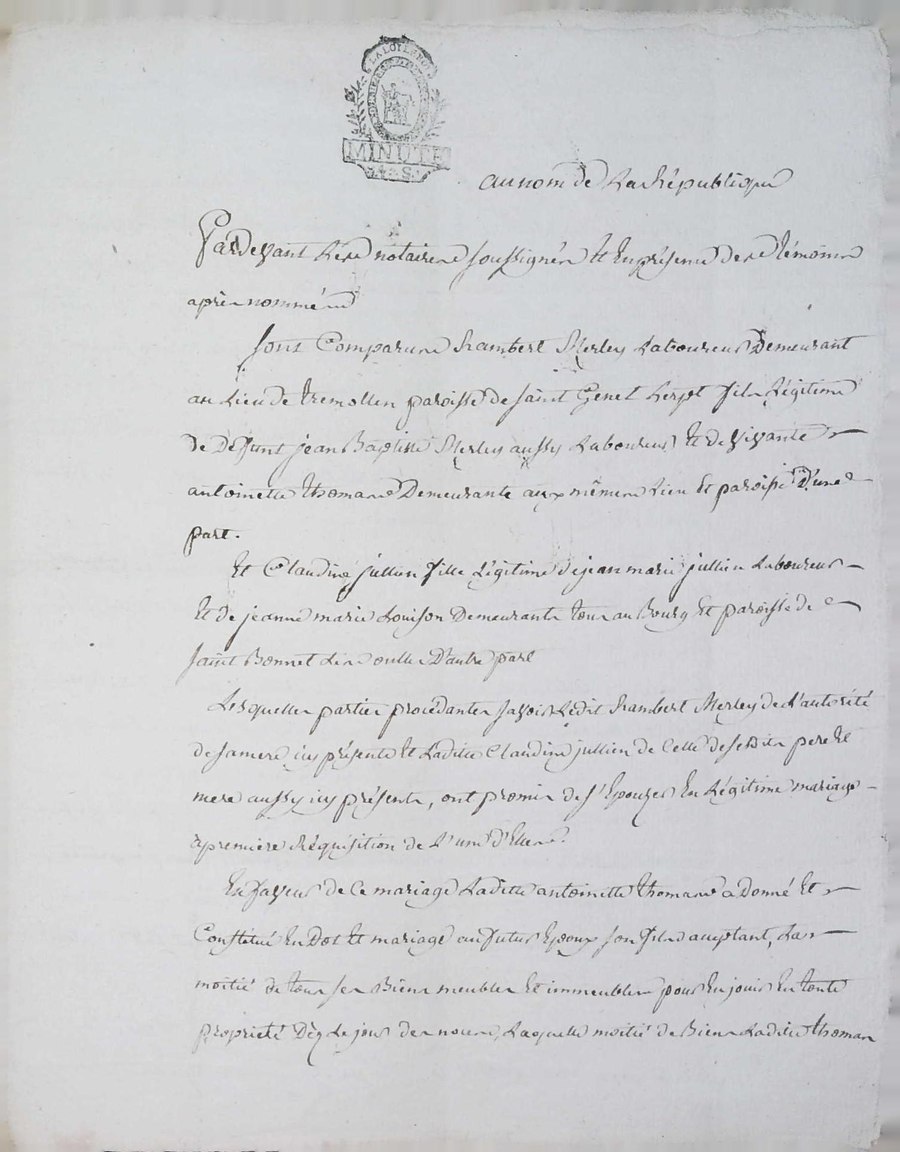 LA LOI LE ROI
MINUTE
4. S.
au nom de La République
Pardevant Les notaires soussignés Et En présence des témoins
après nommés
sont Comparus Rambert Merley Laboureur Demeurant
au Lieu de tremollin paroisse de saint Genet Lerpt fils Légitime
de Défunt jean Baptiste Merley aussy Laboureur, Et de vivante
antoinette thomas Demeurante aux mêmes Lieu Et paroisse D'une
part.
Et Claudine jullien fille Légitime de jean marie jullien Laboureur
Et de jeanne marie Louison Demeurants tous au Bourg Et paroisse de
saint Bonnet Les oulles D'autre part
Lesquelles parties procédantes savoir Ledit Rambert Merley de L'autorité
de sa mere icy présente Et Laditte Claudine jullien de Celle de ses Dits pere Et
mere aussy icy présents, ont promis de s'Epouser En Légitime mariage
a premiere Réquisition de L'une d'Elles.
En faveur de Ce mariage Laditte antoinette thomas a Donné Et
Constitué En Dot Et mariage au futur Epoux son fils acceptant, La
moitié de tous ses Biens meubles Et immeubles pour En jouir En toute
propriété Dès Le jour des noces, Laquelle moitié de Biens Laditte thomas